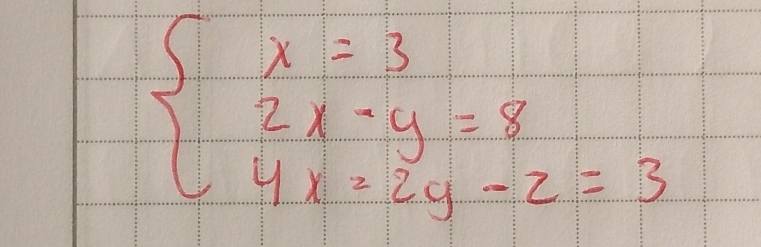 x = 3
2x - y = 8
4x = 2y - z = 3